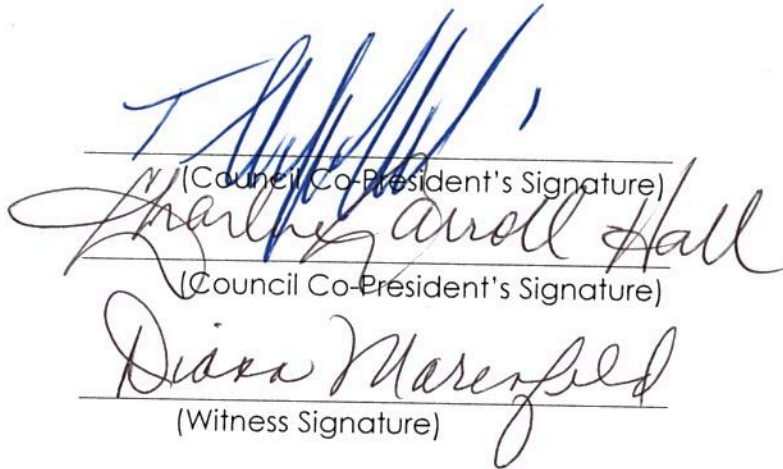 (Council Co-President's Signature)
Charlne Carroll Hall
(Council Co-President's Signature)
Diana Marenfeld
(Witness Signature)